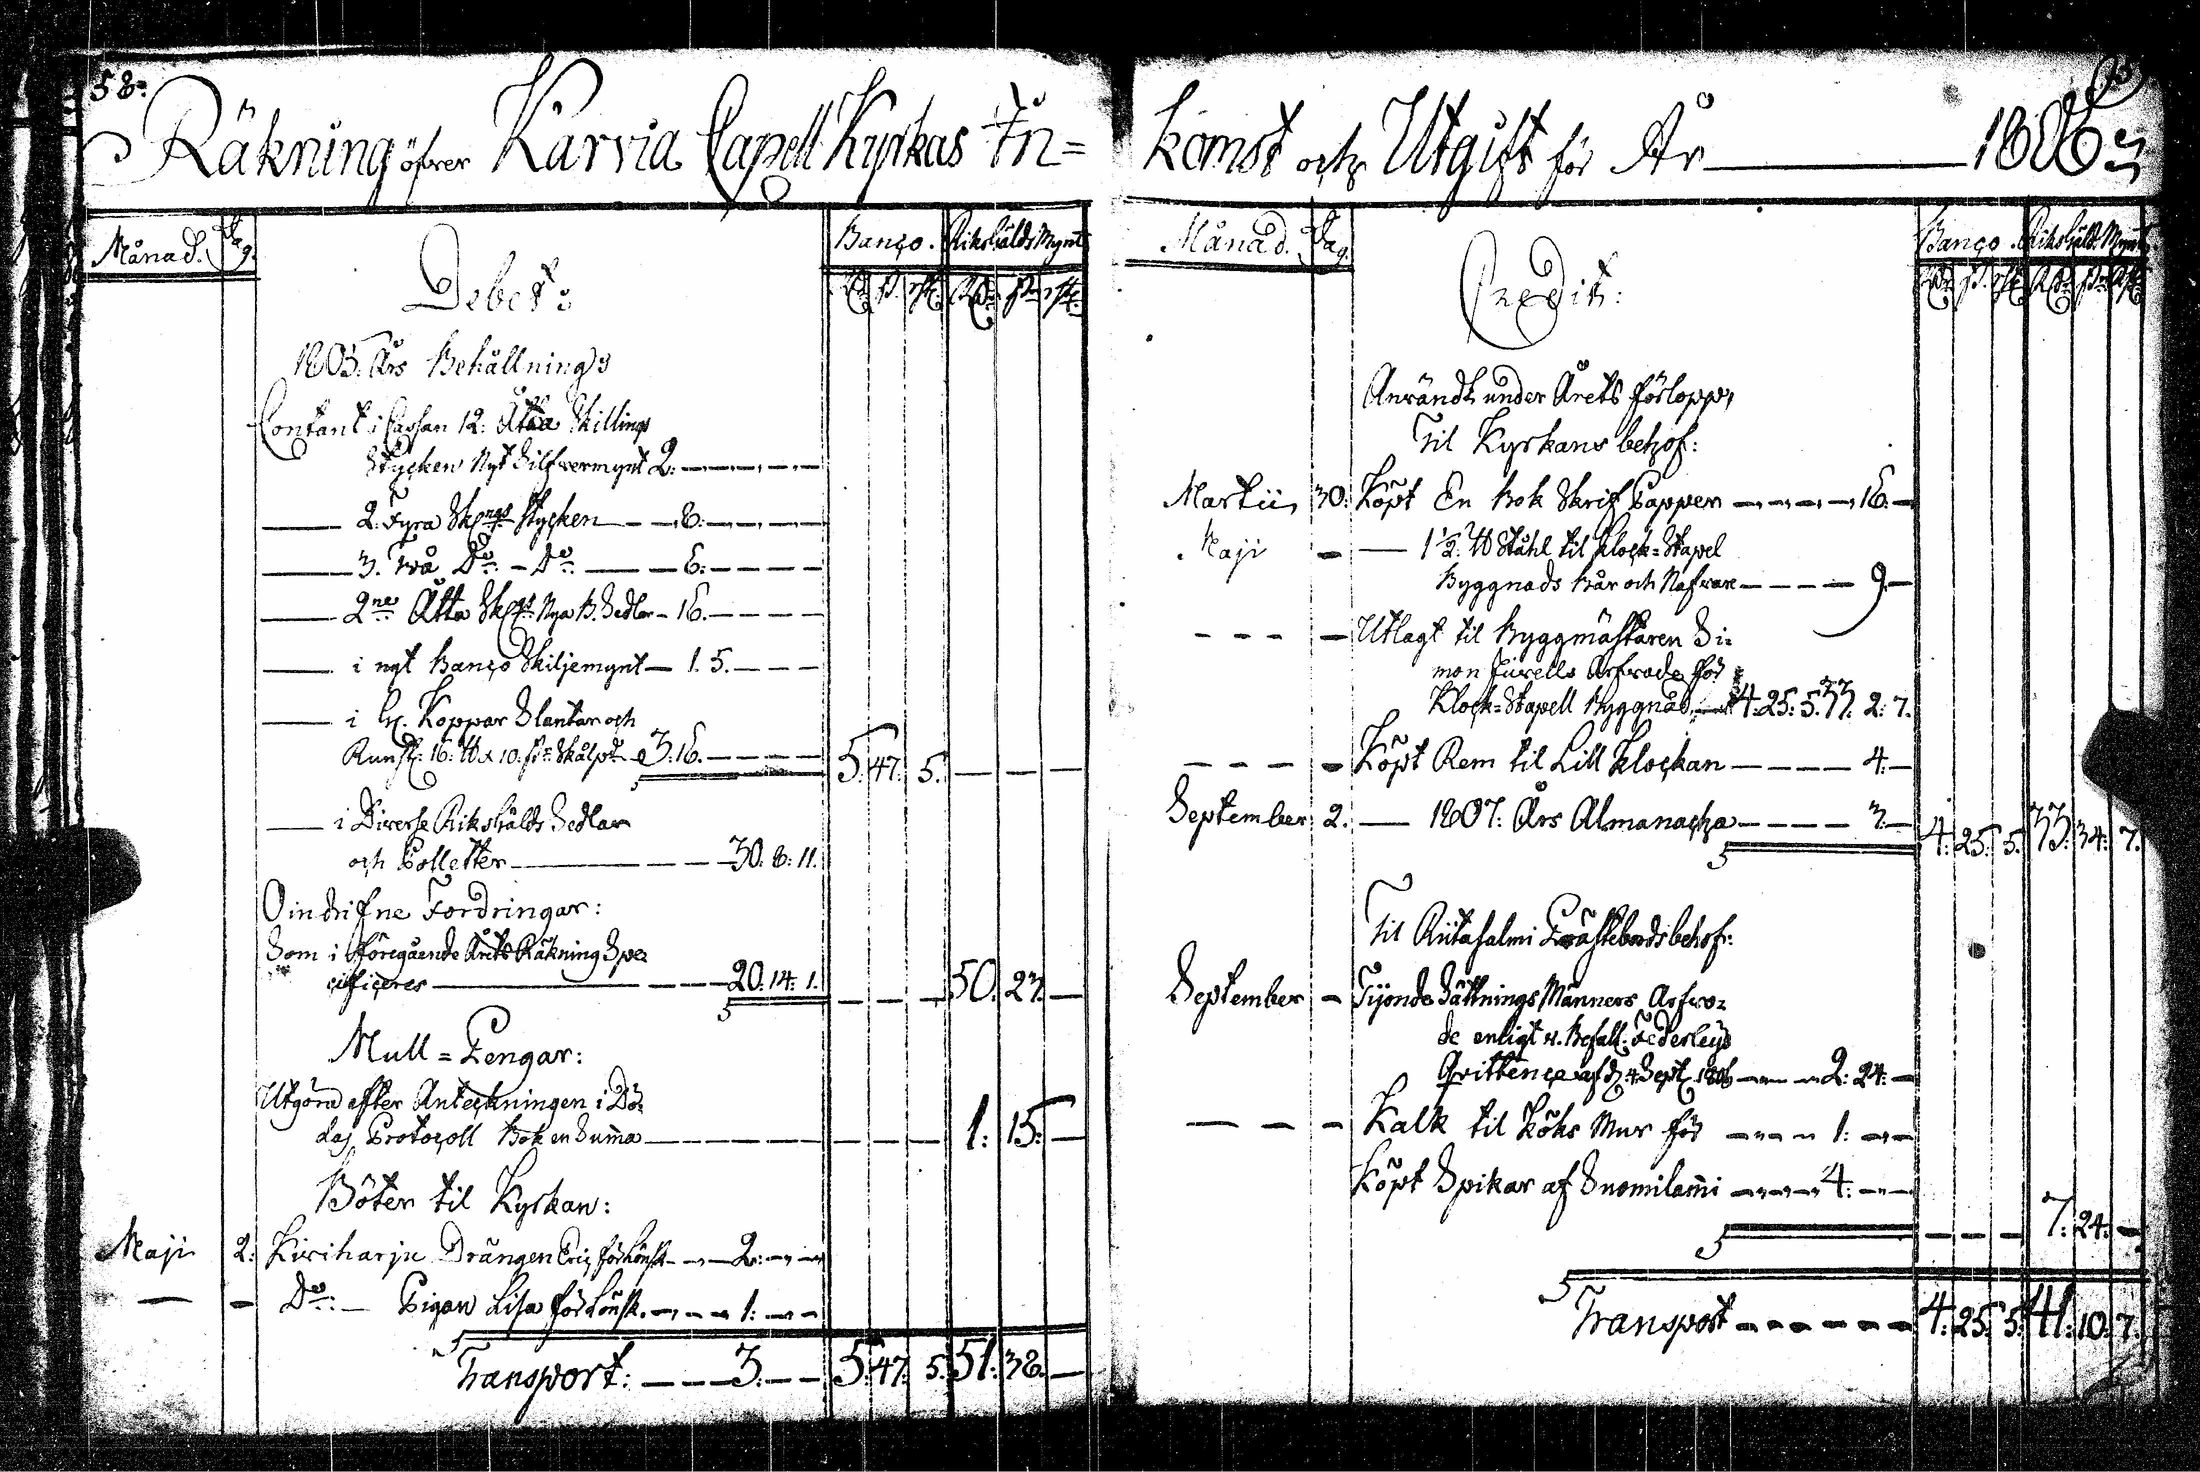 58.
Räkning öfver Karvia Capell Kyrkas In=
Månad. Dag. Banco. Riksgälds Mynt
Debet:
1805. Års Behållning:
Contant i Cassan 12: Åtta Skillings
Stycken Nyt Silfvermynt 2: — — —
— 2. Fyra Sk:ngs Stycken — — 8: — — —
— 3. Två D:o — D:o — — 6: — — —
— 2ne Åtta Sk:gs Nya B. Sedlar — 16. — — —
— i nyt Banco Skiljemynt — 1. 5. — — —
— i Koppar Slantar och
16. ℔ 10. Skålp:d 3. 16. — — — 5. 47. 5. — — —
— i Diverse Riksgälds Sedlar
och Polletter — — — 30. 8. 11.
Oindrifne Fordringar:
Som i föregående Årets Räkning Spe=
cificeres — — — 20. 14. 1. — — — 50. 23. —
Mull = Pengar:
Utgöra efter Anteckningen i Dö=
das Protocoll Bok en Suma — — — — — — 1: 15: —
Böter til Kyrkan:
Maji 2: Kiriharju Drängen Eric för Lönsk — — 2: — —
— — D:o — Pigan Lisa för Lönsk. — — — 1: — —
Transport: — — — 3. — — 5: 47: 5. 51: 38. —
komst och Utgift för År — 1806
Månad. Dag. Banco. Riksgäld. Mynt
Credit:
Användt under Årets förlopp,
Til Kyrkans behof:
Martii 30. Köpt En Bok Skrif Papper — — — 16. —
Maji — — 1½. ℔ Ståhl til Klock=Stapel
Byggnads Bår och Nafvare — — — — 9. —
— — — — Utlagt til Byggmästaren Si=
mon Jurells Arfvode för
Klock=Stapell Byggnad, — 4. 25: 5. 33. 2: 7.
— — — — Köpt Rem til Lill Klockan — — — — 4. —
September 2. — 1807. Års Almanacha — — — — 3. — 4. 25. 5. 33. 34. 7.
Til Riitasalmi Prästebords behof:
September — Tijonde Sättnings Männers Arfvo=
de enligt H. Befall. Federleys
Qvittence af d. 4 Sept. 1806 — — 2: 24: —
— — — Kalk til Köks Mur för — — — 1: — —
Köpt Spikar af Suomilami — — — 4: — —
— — — 7. 24. —
Transport — — — — — — 4: 25. 5: 41: 10. 7.